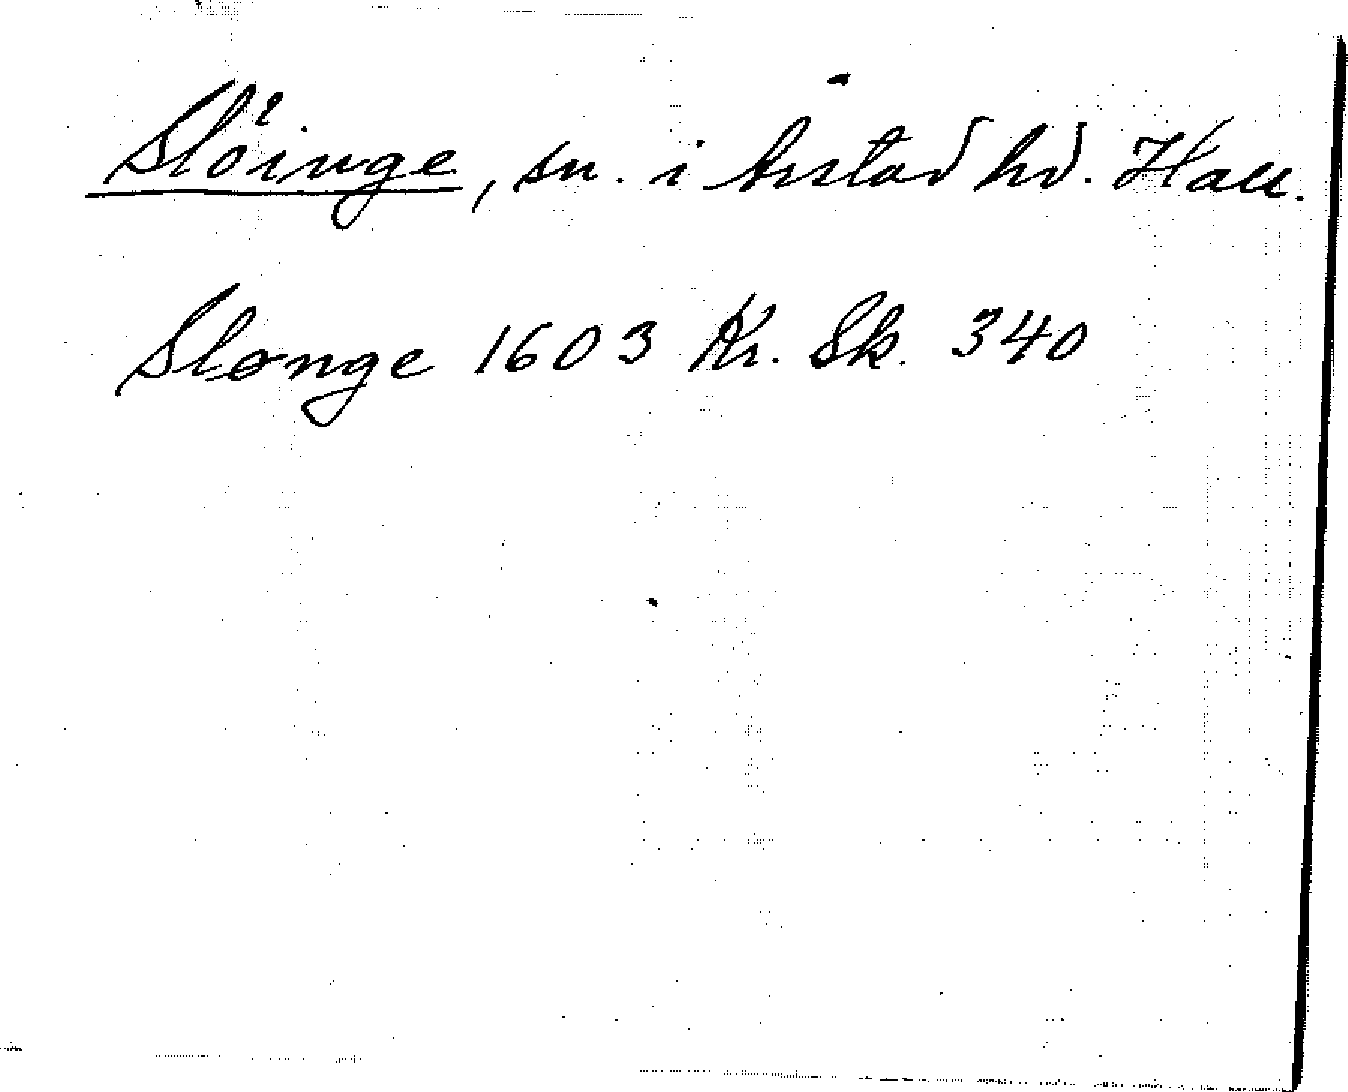 Slöinge, sn. i Årstad hd. Hall.
Slønge 1603 Kr. Sk. 340